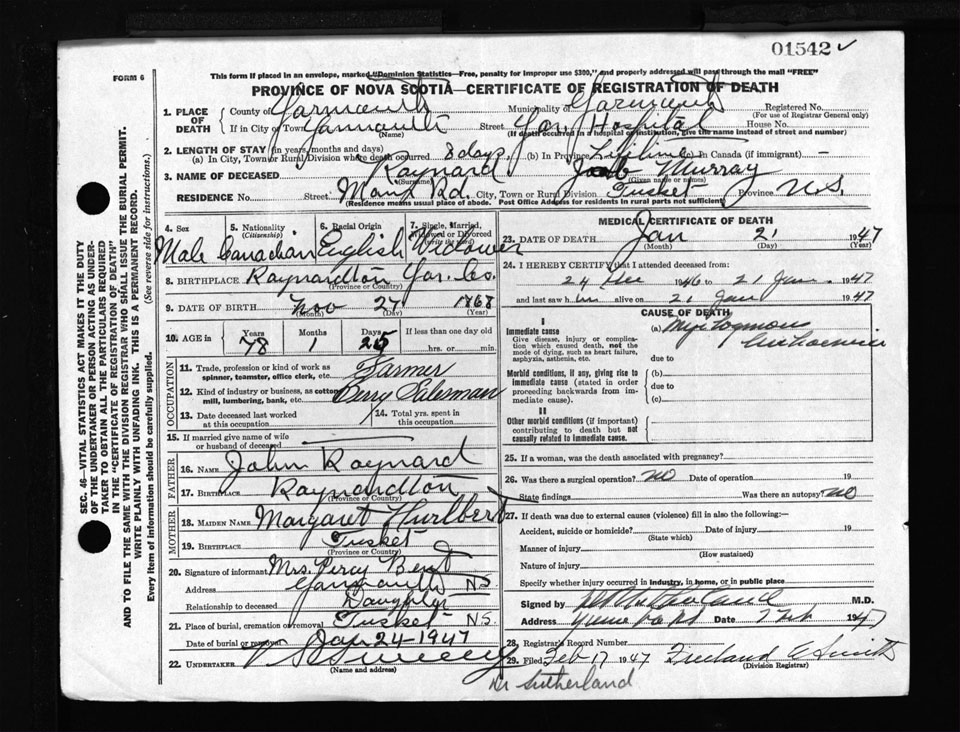 01542 ✓
FORM 6
This form if placed in an envelope, marked "Dominion Statistics—Free, penalty for improper use $300," and properly addressed will pass through the mail "FREE"
PROVINCE OF NOVA SCOTIA—CERTIFICATE OF REGISTRATION OF DEATH
1. PLACE OF DEATH County of Yarmouth Municipality of Yarmouth Registered No.
(For use of Registrar General only)
If in City or Town Yarmouth Street Yar. Hospital House No.
(Name) (If death occurred in a hospital or institution, give the name instead of street and number)
2. LENGTH OF STAY (in years, months and days)
(a) In City, Town or Rural Division where death occurred 8 days. (b) In Province Lifetime (c) In Canada (if immigrant) —
3. NAME OF DECEASED Raynard Jacob Murray
(Surname) (Given name or names)
RESIDENCE No. Street Main Rd. City, Town or Rural Division Tusket Province N.S.
(Residence means usual place of abode. Post Office Address for residents in rural parts not sufficient)
4. Sex 5. Nationality (Citizenship) 6. Racial Origin 7. Single, Married, Widowed or Divorced (write the word)
Male Canadian English Widower
8. BIRTHPLACE Raynardton Yar. Co.
(Province or Country)
9. DATE OF BIRTH Nov 27 1868
(Month) (Day) (Year)
10. AGE in Years Months Days If less than one day old
78 1 25 hrs. or min.
OCCUPATION
11. Trade, profession or kind of work as spinner, teamster, office clerk, etc. Farmer
12. Kind of industry or business, as cotton mill, lumbering, bank, etc. Berry Salesman
13. Date deceased last worked at this occupation
14. Total yrs. spent in this occupation
15. If married give name of wife or husband of deceased
FATHER
16. NAME John Raynard
17. BIRTHPLACE Raynardton
(Province or Country)
MOTHER
18. MAIDEN NAME Margaret Hurlbert
19. BIRTHPLACE Tusket
(Province or Country)
20. Signature of informant Mrs. Percy Bent
Address Yarmouth N.S.
Relationship to deceased Daughter
21. Place of burial, cremation or removal Tusket N.S.
Date of burial or removal Jan 24-1947
22. UNDERTAKER V S Sweeny
(Name and address)
MEDICAL CERTIFICATE OF DEATH
23. DATE OF DEATH Jan 21 1947
(Month) (Day) (Year)
24. I HEREBY CERTIFY that I attended deceased from:
24 Dec 1946 to 21 Jan. 1947
and last saw him alive on 21 Jan 1947
CAUSE OF DEATH
I
Immediate cause (a)
Give disease, injury or complication which caused death, not the mode of dying, such as heart failure, asphyxia, asthenia, etc.
due to
Morbid conditions, if any, giving rise to immediate cause (stated in order proceeding backwards from immediate cause). (b)
due to
(c)
II
Other morbid conditions (if important) contributing to death but not causally related to immediate cause.
25. If a woman, was the death associated with pregnancy?
26. Was there a surgical operation? no Date of operation 19
State findings Was there an autopsy? no
27. If death was due to external causes (violence) fill in also the following:—
Accident, suicide or homicide? Date of injury 19
(State which)
Manner of injury
(How sustained)
Nature of injury
Specify whether injury occurred in industry, in home, or in public place
Signed by M.D.
Address Date 7 Feb 1947
28. Registrar's Record Number
29. Filed Feb 17 1947 Freeland C Smith
(Division Registrar)
Dr Sutherland
SEC. 46—VITAL STATISTICS ACT MAKES IT THE DUTY
OF THE UNDERTAKER OR PERSON ACTING AS UNDER-
TAKER TO OBTAIN ALL THE PARTICULARS REQUIRED
IN THE "CERTIFICATE OF REGISTRATION OF DEATH"
AND TO FILE THE SAME WITH THE DIVISION REGISTRAR WHO SHALL ISSUE THE BURIAL PERMIT.
WRITE PLAINLY WITH UNFADING INK. THIS IS A PERMANENT RECORD.
Every item of information should be carefully supplied. (See reverse side for instructions.)